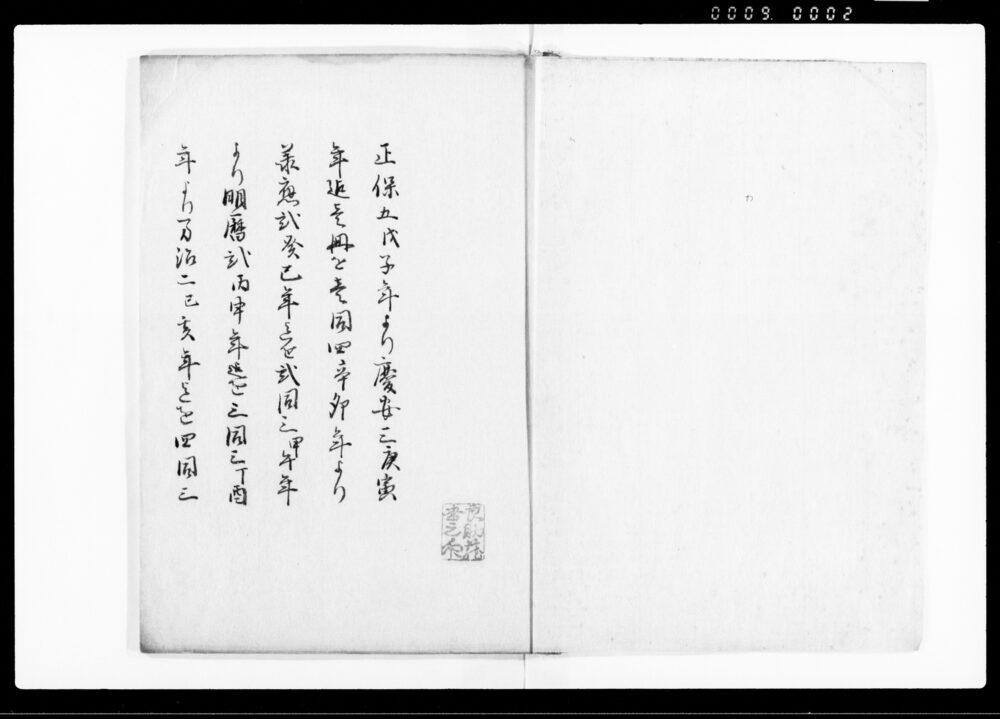 0009. 0002
正保五戊子年より慶安三庚寅
年迄壱冊を壱同四辛卯年より
承應弐癸巳年迄を弐同三甲午年
より明暦弐丙申年迄を三同三丁酉
年より万治二己亥年迄を四同三